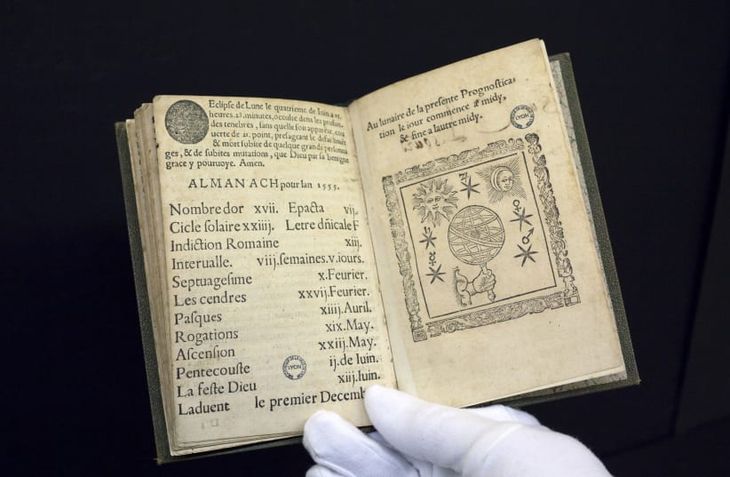 Eclipse de Lune le quatrieme de Iuin a
heures. minutes, occulte dans les
des tenebres, sans quelle soit
uerte de point, presageant le
& mort subite de quelque grand
ges, & de subites mutations, que Dieu par sa benigne
grace y pouruoye. Amen.
ALMANACH pour lan 1555.
Nombre dor xvij. Epacta vij.
Cicle solaire xxiij. Letre dñicale F
Indiction Romaine xiij.
Interualle. viij.semaines.v.iours.
Septuagesime x.Feurier.
Les cendres xxvij.Feurier.
Pasques xiiij.Auril.
Rogations xix.May.
Ascension xxiij.May.
Pentecouste ij.de Iuin.
La feste Dieu xiij.Iuin.
Laduent le premier Decemb
LYON
Au lunaire de la presente Prognostica
tion le iour commence a midy,
& fine a lautre midy.
LYON